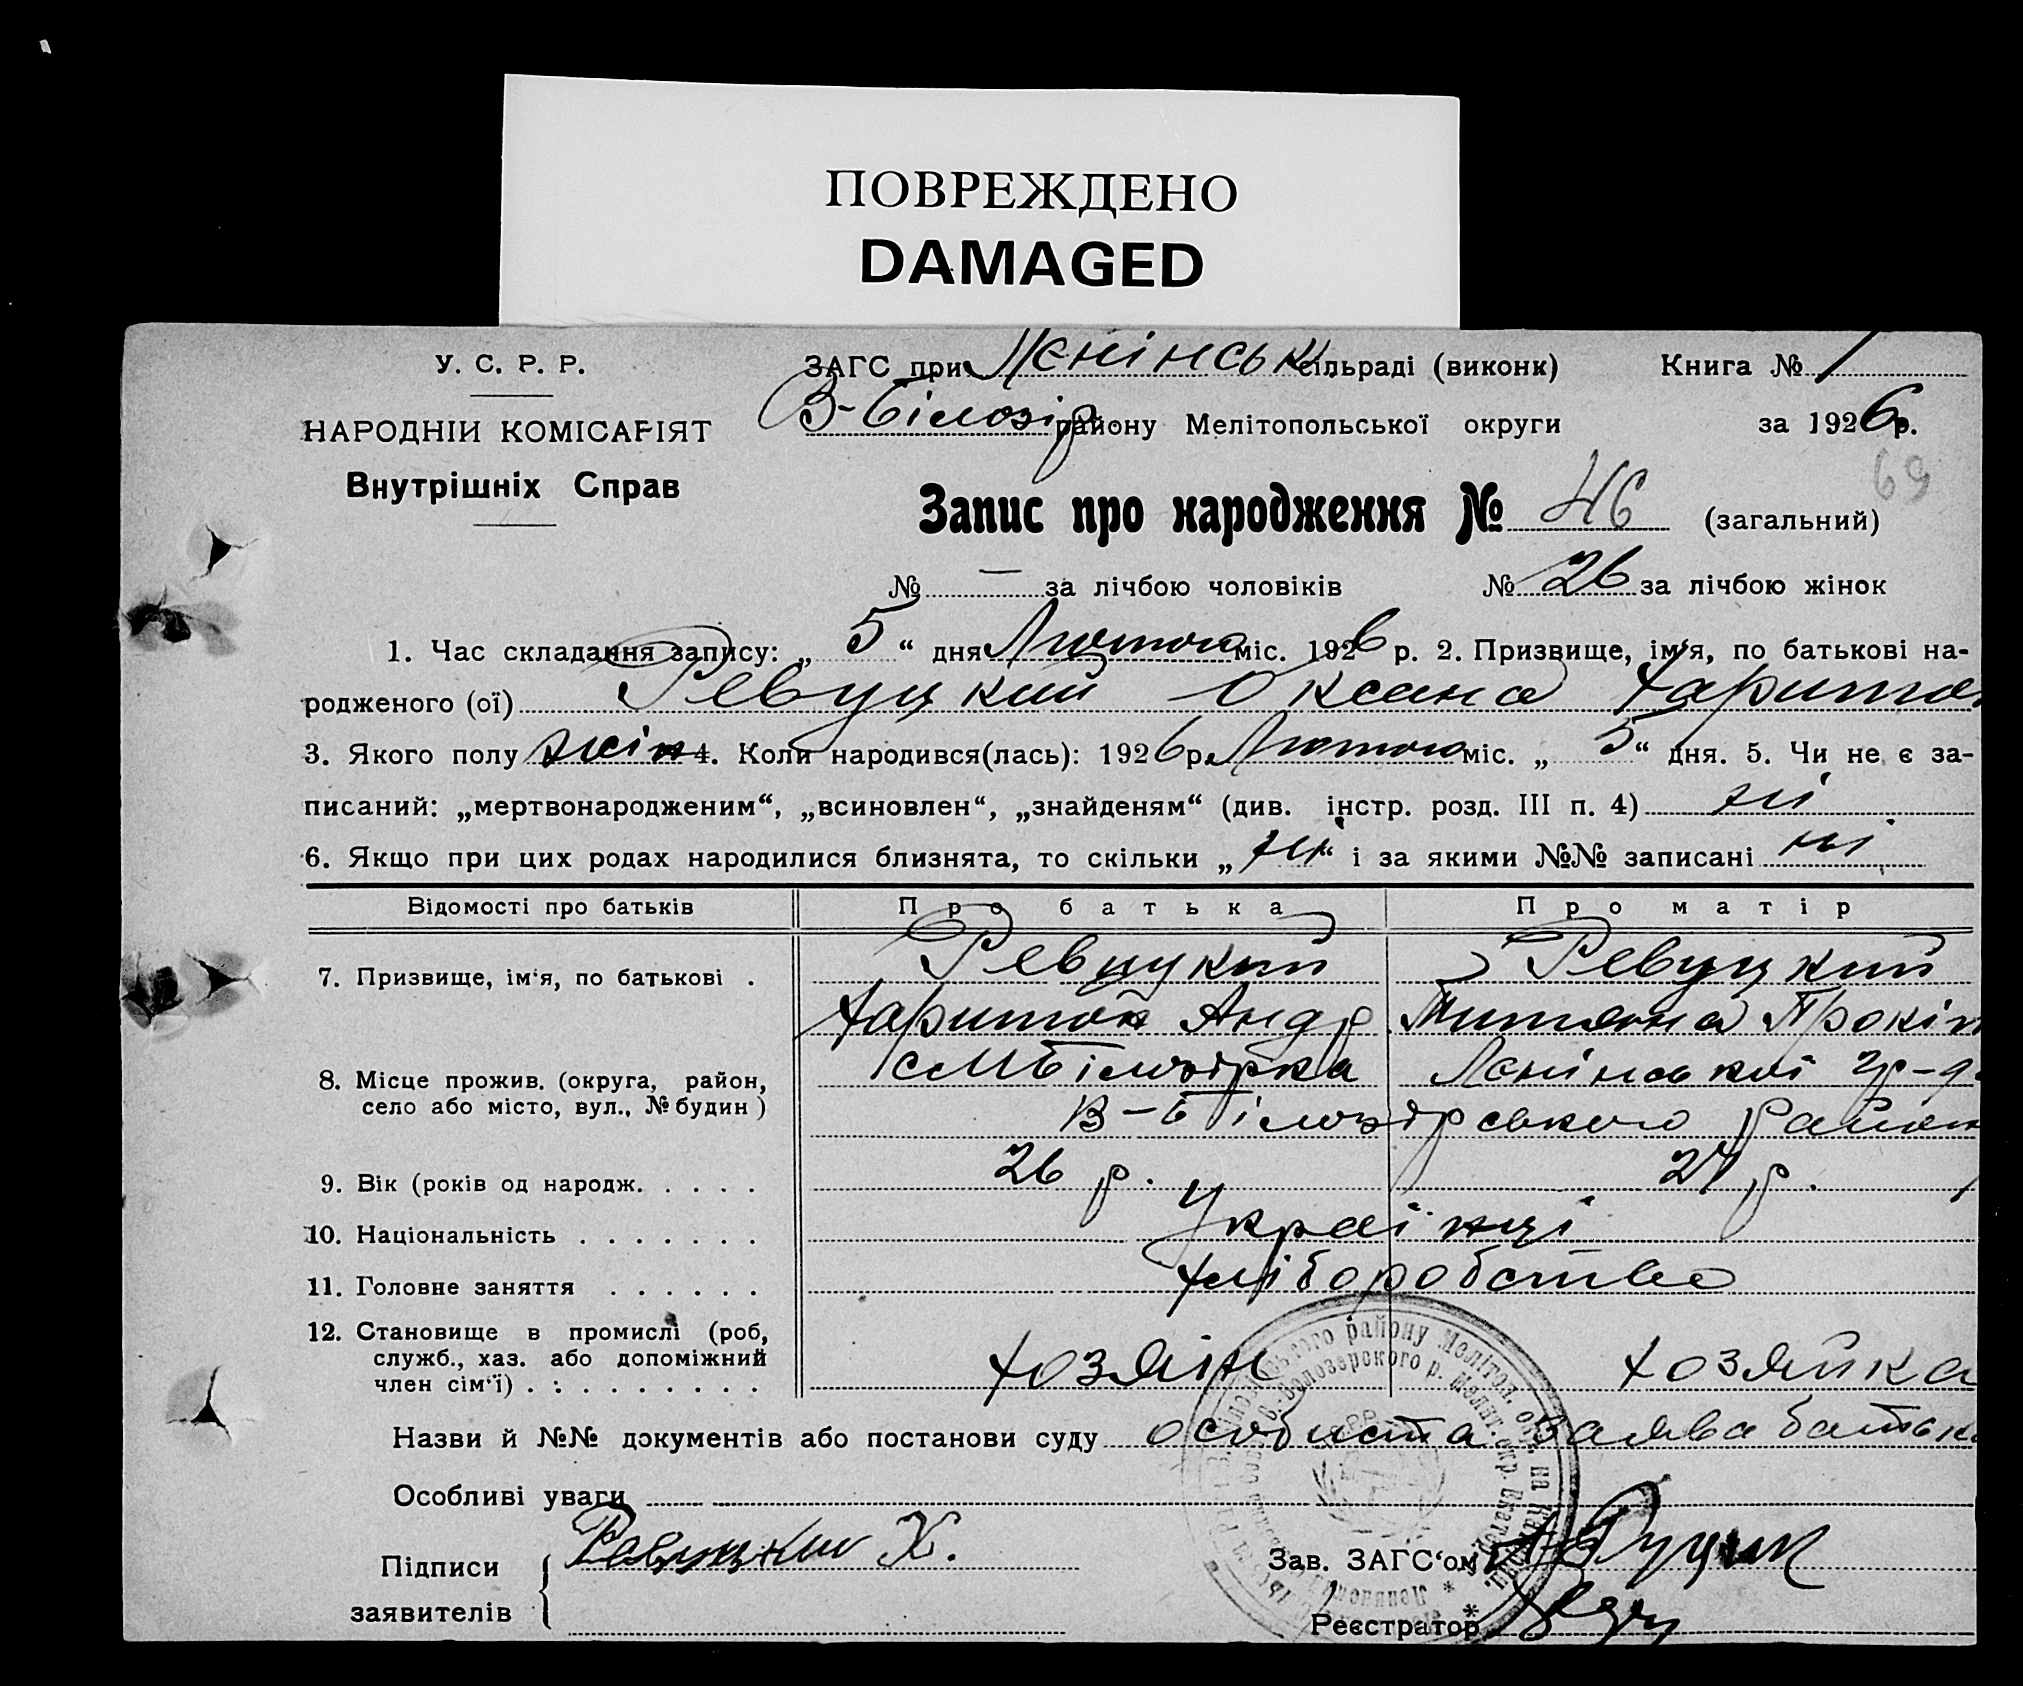 ПОВРЕЖДЕНО
DAMAGED
У. С. Р. Р.
НАРОДНІЙ КОМІСАРІЯТ
Внутрішніх Справ
ЗАГС при Лєнінськ. сільраді (виконк) Книга № 1
В-Білозір. району Мелітопольської округи за 1926 р.
69
Запис про народження № 46 (загальний)
№ — за лічбою чоловіків № 26 за лічбою жінок
1. Час складання запису: „ 5 “ дня Лютого міс. 1926 р. 2. Призвище, ім‘я, по батькові на-
родженого (ої) Ревуцкий Оксана Харитон
3. Якого полу жін 4. Коли народився(лась): 1926 р. Лютого міс. „ 5 “ дня. 5. Чи не є за-
писаний: „мертвонародженим“, „всиновлен“, „знайденям“ (див. інстр. розд. III п. 4) ні
6. Якщо при цих родах народилися близнята, то скільки „ ні “ і за якими №№ записані ні
Відомості про батьків Про батька Про матір
7. Призвище, ім‘я, по батькові . Ревуцкий Ревуцкий
Харитон Андр Титяна Прокіп
8. Місце прожив. (округа, район, сМБілозірка Лєнінської
село або місто, вул., № будин) В-Білозірського район
9. Вік (років од народж. . . . . 26 р. 24 р.
10. Національність . . . . . . . Українці
11. Головне заняття . . . . . . Хліборобство
12. Становище в промислі (роб,
служб., хаз. або допоміжний хозяін хозяйка
член сім‘ї) . : . . . . . . . .
Назви й №№ документів або постанови суду особиста заява батька
Особливі уваги
Підписи Ревуцкий Х. Зав. ЗАГС‘ом
заявителів Реєстратор